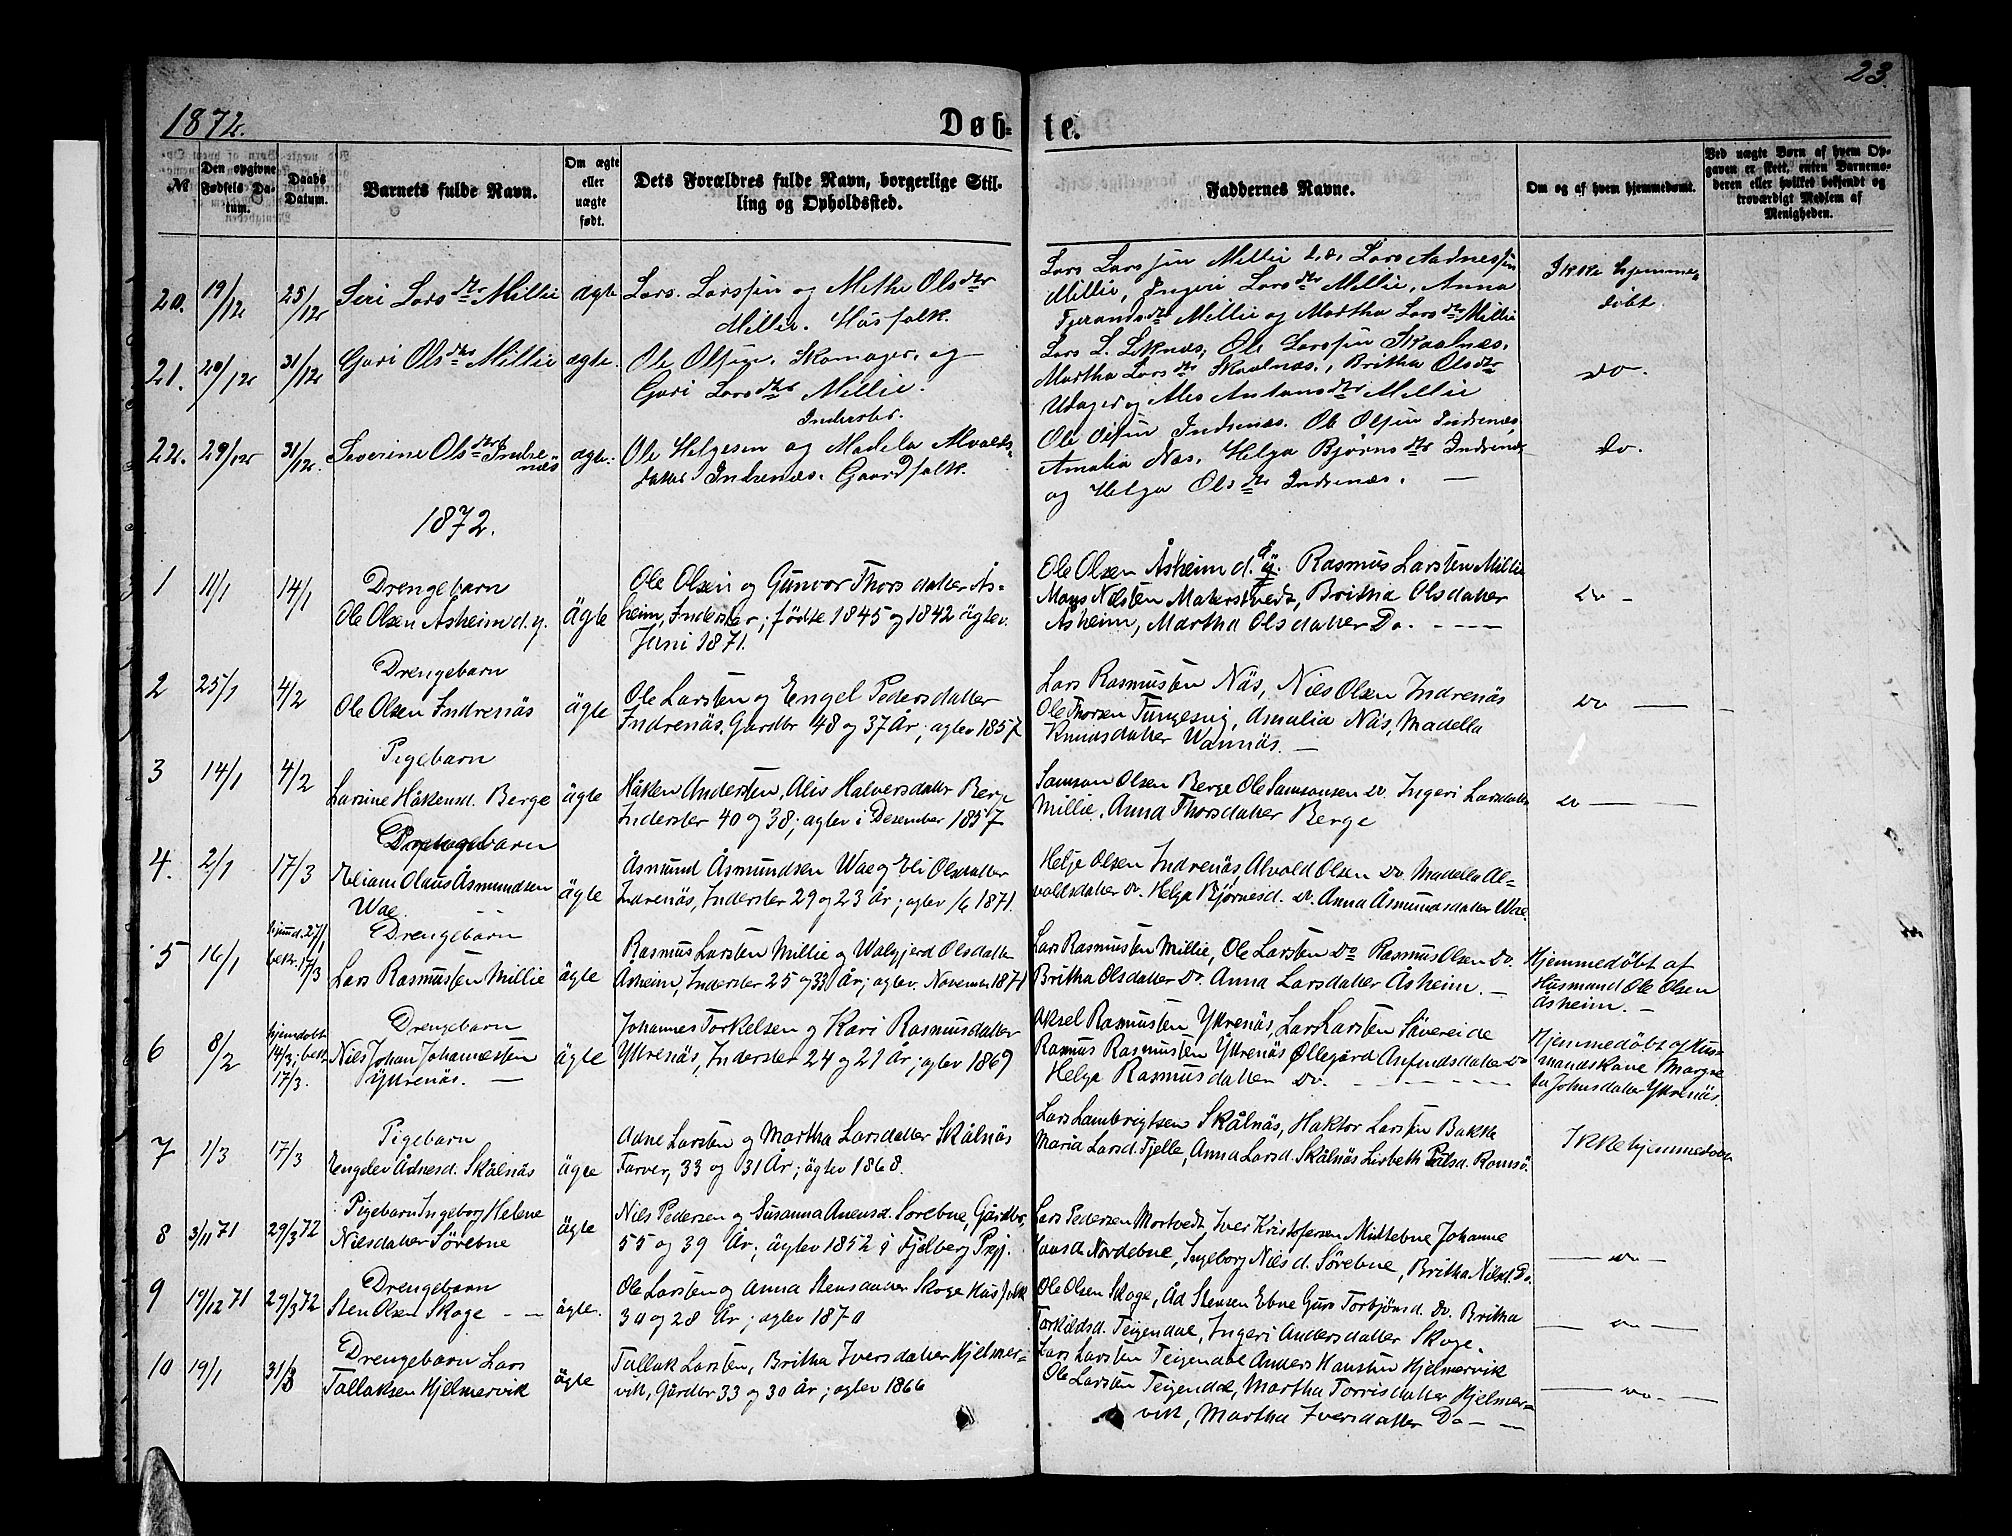 23.
1872.
Døbte.
№
Den opgivne Fødsels Datum.
Daabs Datum.
Barnets fulde Navn.
Om ægte eller uægte født.
Dets Forældres fulde Navn, borgerlige Stilling og Opholdssted.
Faddernes Navne.
Om og af hvem hjemmedøbt.
Ved uægte Børn af hvem Opgaven er skeet, enten Barnemoderen eller hvilket bekjendt og troværdigt Medlem af Menigheden.
20. 19/12 25/12 Seri Larsdtr Millie ægte
Lars Larssen og Methe Olsdtr
Millie. Husfolk.
Lars Larssen Millie Lars Aadnessen
Millie, Ingeri Larsdtr Millie, Anna
Millie og Martha Larsdtr Millie
Ikke hjemme-
døbt.
21. 20/12 31/12 Gari Olsdtr Millie ægte.
Ole Olsen, Skomager, og
Gari Larsdtr Millie.
Inderster.
Lars L. Ole Larssen Skaalnæs.
Martha Larsdtr Skaalnæs, Britha Olsdtr
og Millie
Do.
22. 29/12 31/12. Severine Olsdtr Indre-
næs ægte.
Ole Helgesen og Madela Alvolds-
datter Indrenæs. Gaardfolk.
Ole Olsen Indrenæs. Ole Olsen Indrenæs,
Amalia Næs, Helga Bjørnsdtr Indrenæs
og Helga Olsdtr Indrenæs. —
Do.
1872.
1 11/1 14/1 Drengebarn
Ole Olsen Åsheim d.y. ägte
Ole Olsen og Gunvor Thorsdatter Ås-
heim, Inderster; födte 1845 og 1842 ägtev.
Juni 1871.
Ole Olsen Åsheim d. y. Rasmus Larsten Millie
Mons Nilsten Materstvedt, Britha Olsdatter
Åsheim, Martha Olsdatter Do. - - - -
Do -
2 25/1 4/2 Drengebarn
Ole Olsen Indrenäs ägte
Ole Larsten og Engel Pedersdatter
Indrenäs, Gardbr 48 og 37 År; ägtev 1857
Lars Rasmusten Näs, Niels Olsen Indrenäs
Ole Thorsen Tungesvig, Amalia Näs, Madella
Knudsdatter Wannäs. —
Do —
3 14/1 4/2 Pigebarn
Larsine Håkensd. Berge ägte
Håken Andersten, Aliv Halversdatter Berge
Inderster 40 og 38; ägtev i Desember 1857
Samson Olsen Berge Ole Samsonsen Do. Ingeri Larsdatter
Millie, Anna Thorsdatter Berge
Do — —
4. 2/1 17/3 Drengebarn
Eliam Olaus Åsmundsen
Wae. ägte
Åsmund Åsmundsen Wae og Eli Olsdatter
Indrenäs, Inderster 29 og 23 År; ägtev 1871.
Helje Olsen Indrenäs, Alvold Olsen Do. Madella Al-
voldsdatter Do. Helga Björnesd. Do. Anna Åsmundsdatter Wae.
5 16/1 hjemd. 27/1
bekr. 17/3 Drengebarn
Lars Rasmusten Millie ägte
Rasmus Larsten Millie og Walgjerd Olsdatter
Åsheim, Inderster 25 og 33 År; ägtev. November 1871
Lars Rasmusten Millie, Ole Larsten Do Rasmus Olsen Do.
Britha Olsdatter Do. Anna Larsdatter Åsheim. —
Hjemmedöbt af
Husmand Ole Olsen
Åsheim. —
6 8/2 hjemdöbt
14/3; bekr
17/3. Drengebarn
Niels Johan Johannesten
Yttrenäs. — ägte
Johannes Torkelsen og Kari Rasmusdatter
Yttrenäs, Inderster 24 og 21 År; ägtev 1869
Aksel Rasmusten Yttrenäs, Lars Larsten Sävereide
Rasmus Rasmusten Yttrenäs Öllegård Do
Helga Rasmusdatter Do. - - - -
Hjemmedöbt af Hus-
mandskone Margre-
ta Johnsdatter Yttrenäs.
7 1/3 17/3 Pigebarn
Engelev Ådnesd. Skålnäs ägte
Adne Larsten og Martha Larsdatter Skålnäs
Farver, 33 og 31 År; ägtev 1868.
Lars Lambrigtsen Skålnäs, Haktor Larsten Bakke
Maria Larsd. Fjelle, Anna Larsd. Skålnäs Lisbeth Romsö.
Ikke hjemmedöbt
8 3/11 71 29/3 72 Pigebarn Ingeborg Helene
Nielsdatter Sörebne ägte
Niels Pedersen og Susanna Anensd. Sörebne, Gårdbr,
55 og 39 År; ägtev 1852 i Fjelberg Prgj.
Lars Pedersen Mortvedt Iver Kristofersen Mittebne Johanne
Hansd Nordebne, Ingeborg Nielsd. Sörebne, Britha Nielsd. Do.
— do —
9 19/12 71 29/3 72 Drengebarn
Sten Olsen Skoge - — ägte.
Ole Larsten og Anna Stensdatter Skoge Husfolk
30 og 28 År; ägtev 1870
Ole Olsen Skoge, Åd Stensen Ebne Guro Torbjörnsd. Do. Britha
Torkildsd. Teigendal, Ingeri Andersdatter Skoge.
— do —
10 19/1 31/3 Drengebarn Lars
Tollaksen Hjelmervik ägte
Tollak Larsten, Britha Iversdatter Hjelmer-
vik, Gårdbr 33 og 30 år; ägtev 1866
Lars Larsten Teigendal Anders Hansten Hjelmervik
Ole Larsten Teigendal, Martha Torrisdatter Hjelmer-
vik, Martha Iversdatter Do — —
— do —